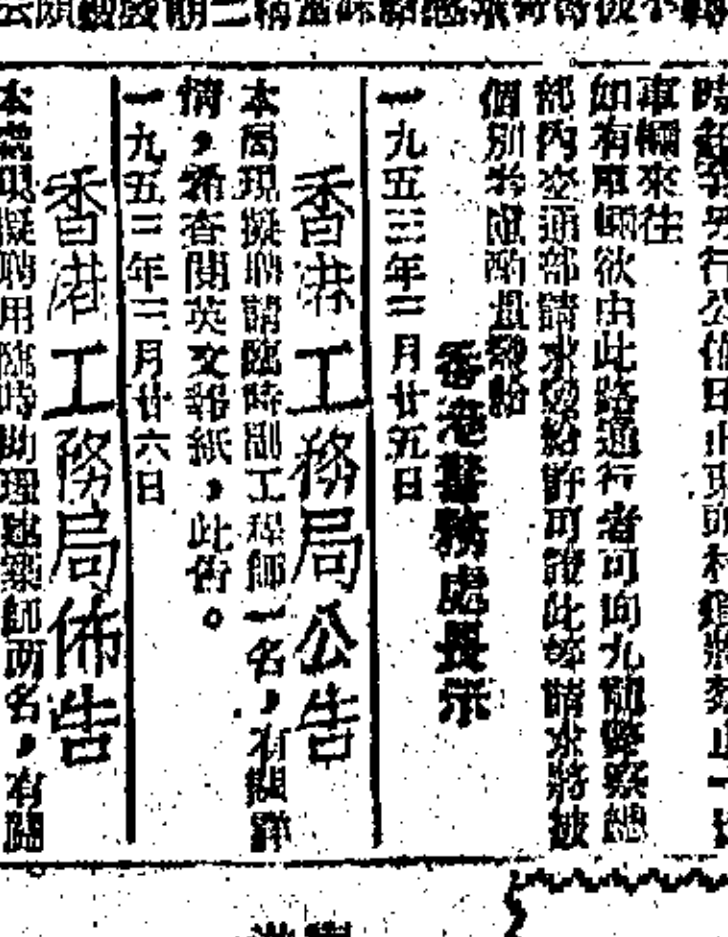 車輛來往
如有車輛欲由此路通行者可向九龍警察總
部內交通部請求發給許可證此等請求將被
個別考慮酌量發給
香港警務處長示
一九五三年三月廿五日
香港工務局公告
本局現擬聘請臨時副工程師一名，有關詳
情，希查閱英文報紙，此佈。
一九五三年三月廿六日
香港工務局佈告
本局現擬聘用臨時助理建築師兩名，有關